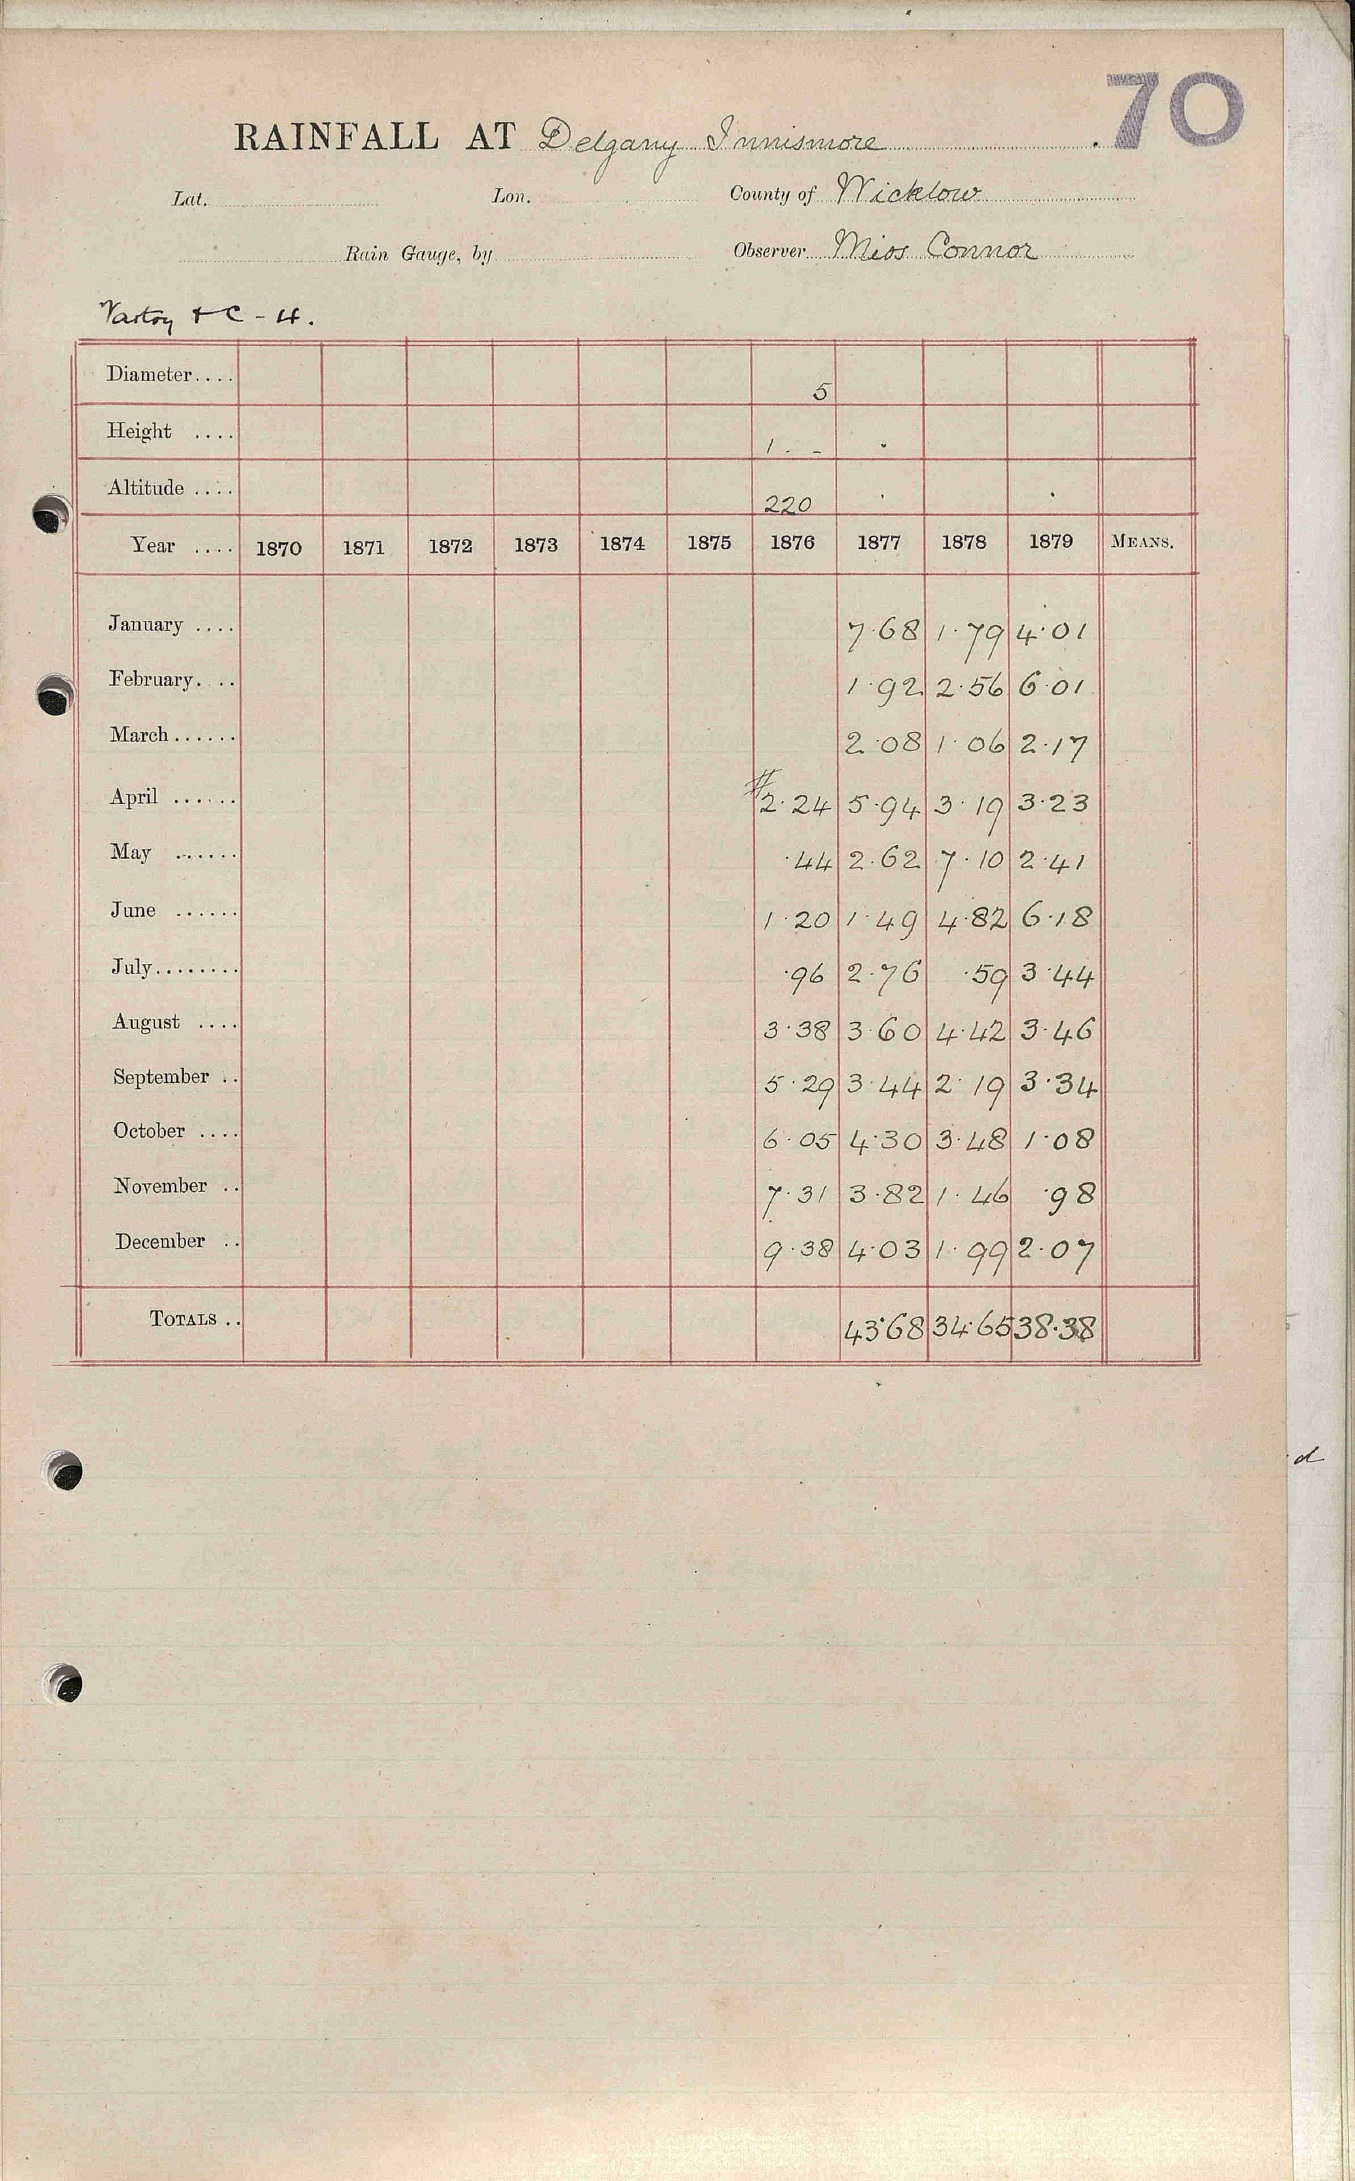 70
RAINFALL AT Delgany Innismore
Lat. Lon. County of Wicklow
Rain Gauge, by Observer Miss Connor
Vartry & C - 4.
Diameter.... 5
Height .... 1. -
Altitude .... 220
Year .... 1870 1871 1872 1873 1874 1875 1876 1877 1878 1879 MEANS.
January .... 7.68 1.79 4.01
February.... 1.92 2.56 6.01
March...... 2.08 1.06 2.17
April ...... #2.24 5.94 3.19 3.23
May ...... .44 2.62 7.10 2.41
June ...... 1.20 1.49 4.82 6.18
July........ .96 2.76 .59 3.44
August .... 3.38 3.60 4.42 3.46
September .. 5.29 3.44 2.19 3.34
October .... 6.05 4.30 3.48 1.08
November .. 7.31 3.82 1.46 .98
December .. 9.38 4.03 1.99 2.07
TOTALS .. 43.68 34.65 38.38
d